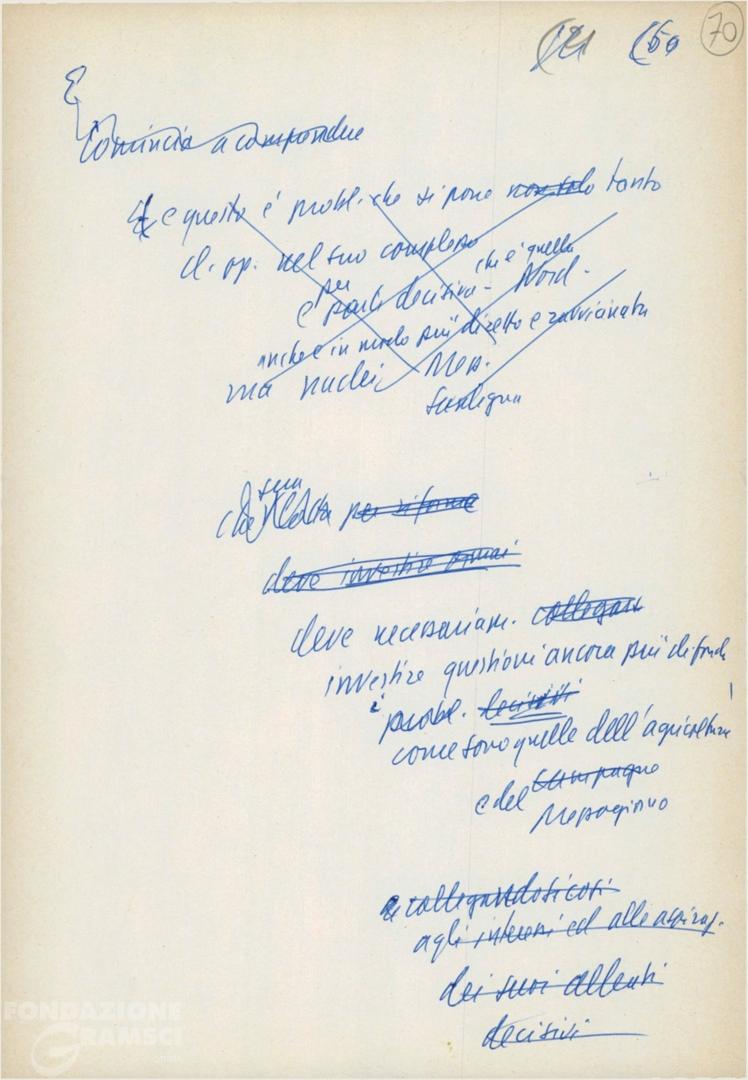 70
E
Comincia a comprendere
E e questo è probl. che si pone non solo tanto
cl. op. nel suo complesso
per
che è quella
e parte decisiva - Nord -
anche in modo più diretto e ravvicinato
ma nuclei Mer.
Sardegna
sua
che lotta per riforme
deve investire ormai
deve necessariam. collegare
investire questioni ancora più di fondo
i probl. decisivi
come sono quelle dell'agricoltura
e del campagne
Mezzogiorno
e collegandosi così
agli interessi ed alle aspiraz.
dei suoi alleati
decisivi
FONDAZIONE
GRAMSCI